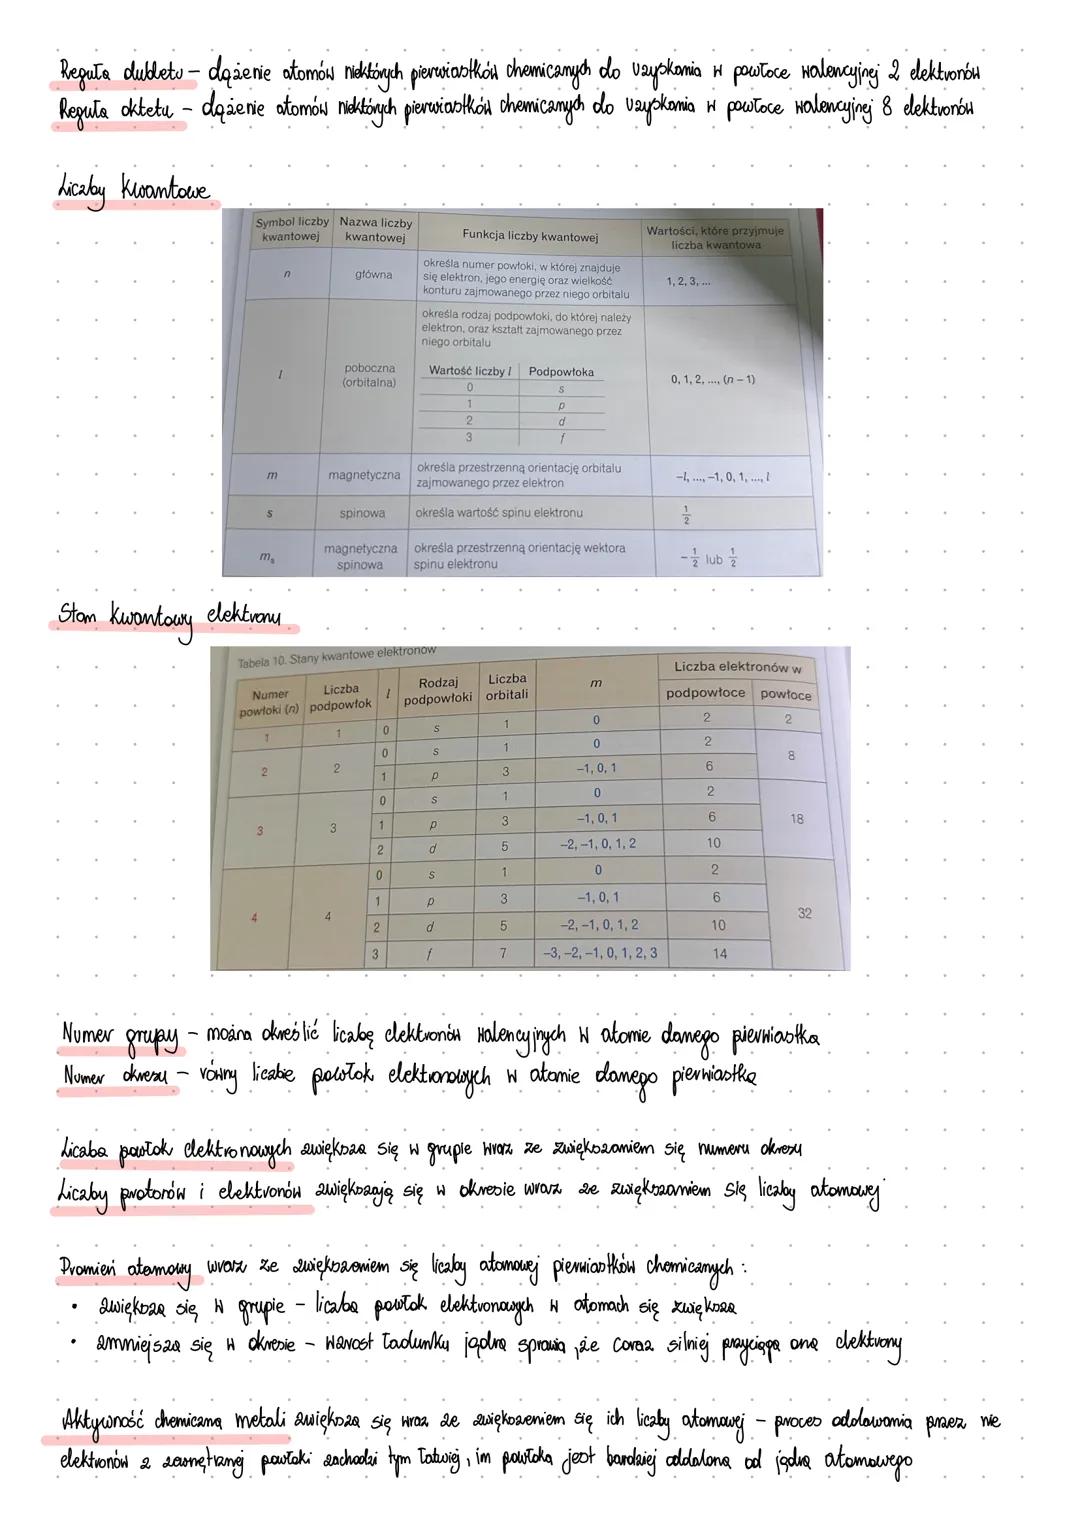 Reguła dubletu – dążenie atomów niektórych pierwiastków chemicznych do uzyskania w powłoce walencyjnej 2 elektronów
Reguła oktetu – dążenie atomów niektórych pierwiastków chemicznych do uzyskania w powłoce walencyjnej 8 elektronów
Liczby kwantowe
Symbol liczby kwantowej | Nazwa liczby kwantowej | Funkcja liczby kwantowej | Wartości, które przyjmuje liczba kwantowa
n | główna | określa numer powłoki, w której znajduje się elektron, jego energię oraz wielkość konturu zajmowanego przez niego orbitalu | 1, 2, 3, ...
l | poboczna (orbitalna) | określa rodzaj podpowłoki, do której należy elektron, oraz kształt zajmowanego przez niego orbitalu | 0, 1, 2, ..., (n – 1)
Wartość liczby l | Podpowłoka
0 | s
1 | p
2 | d
3 | f
m | magnetyczna | określa przestrzenną orientację orbitalu zajmowanego przez elektron | –l, ..., –1, 0, 1, ..., l
s | spinowa | określa wartość spinu elektronu | 1/2
mₛ | magnetyczna spinowa | określa przestrzenną orientację wektora spinu elektronu | –1/2 lub 1/2
Stan kwantowy elektronu
Tabela 10. Stany kwantowe elektronów
Numer powłoki (n) | Liczba podpowłok | l | Rodzaj podpowłoki | Liczba orbitali | m | Liczba elektronów w podpowłoce | powłoce
1 | 1 | 0 | s | 1 | 0 | 2 | 2
2 | 2 | 0 | s | 1 | 0 | 2 | 8
1 | p | 3 | –1, 0, 1 | 6
3 | 3 | 0 | s | 1 | 0 | 2 | 18
1 | p | 3 | –1, 0, 1 | 6
2 | d | 5 | –2, –1, 0, 1, 2 | 10
4 | 4 | 0 | s | 1 | 0 | 2 | 32
1 | p | 3 | –1, 0, 1 | 6
2 | d | 5 | –2, –1, 0, 1, 2 | 10
3 | f | 7 | –3, –2, –1, 0, 1, 2, 3 | 14
Numer grupy – można określić liczbę elektronów walencyjnych w atomie danego pierwiastka
Numer okresu – równy liczbie powłok elektronowych w atomie danego pierwiastka
Liczba powłok elektronowych zwiększa się w grupie wraz ze zwiększaniem się numeru okresu
Liczby protonów i elektronów zwiększają się w okresie wraz ze zwiększaniem się liczby atomowej
Promień atomowy wraz ze zwiększeniem się liczby atomowej pierwiastków chemicznych :
• zwiększa się w grupie – liczba powłok elektronowych w atomach się zwiększa
• zmniejsza się w okresie – wzrost ładunku jądra sprawia, że coraz silniej przyciąga ona elektrony
Aktywność chemiczna metali zwiększa się wraz ze zwiększeniem się ich liczby atomowej – proces oddawania przez nie
elektronów z zewnętrznej powłoki zachodzi tym łatwiej, im powłoka jest bardziej oddalona od jądra atomowego